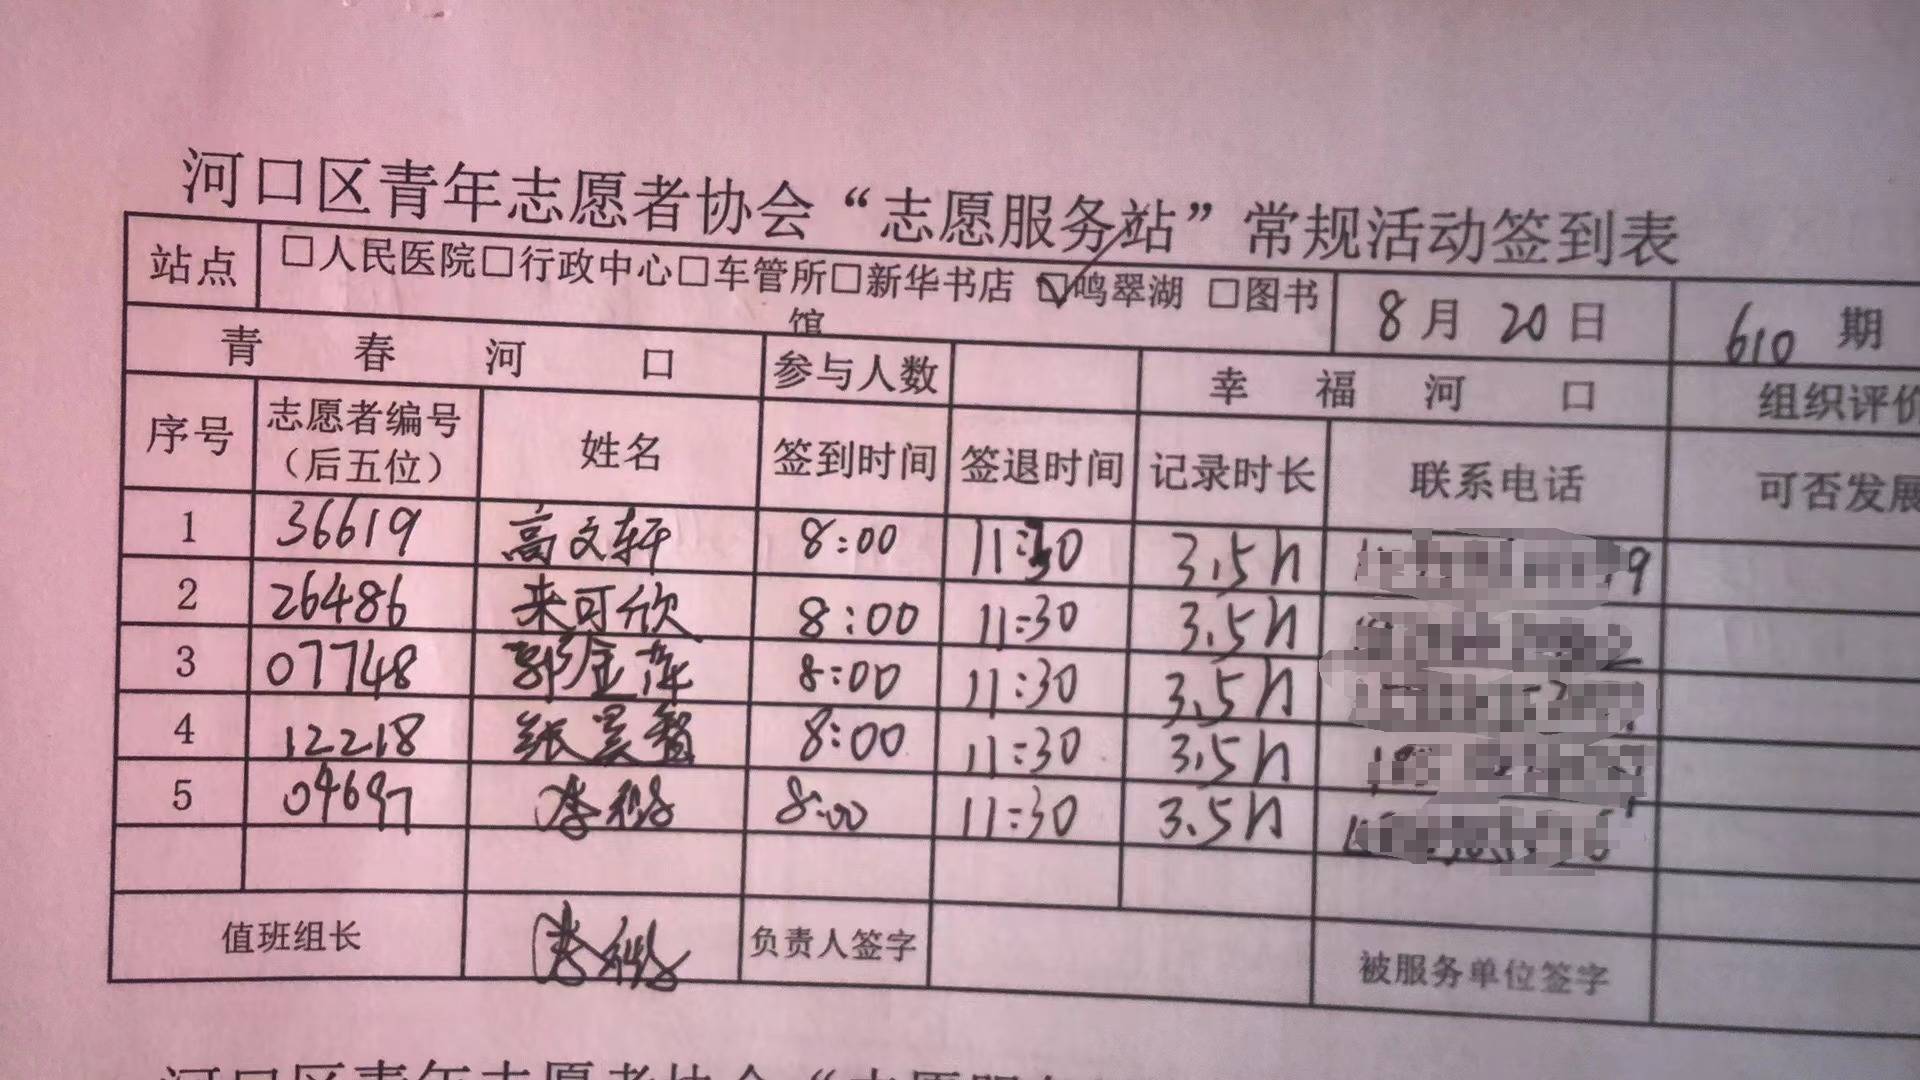 河口区青年志愿者协会“志愿服务站”常规活动签到表
站点 □人民医院□行政中心□车管所□新华书店 ☑鸣翠湖 □图书馆 8月20日 610期
青春河口 参与人数 幸福河口 组织评价
序号 志愿者编号（后五位） 姓名 签到时间 签退时间 记录时长 联系电话 可否发展
1 36619 高文轩 8:00 11:30 3.5h
2 26486 来可欣 8:00 11:30 3.5h
3 07748 郭金萍 8:00 11:30 3.5h
4 12218 张昊智 8:00 11:30 3.5h
5 04697 8:00 11:30 3.5h
值班组长 负责人签字 被服务单位签字
河口区青年志愿者协会“志愿服务